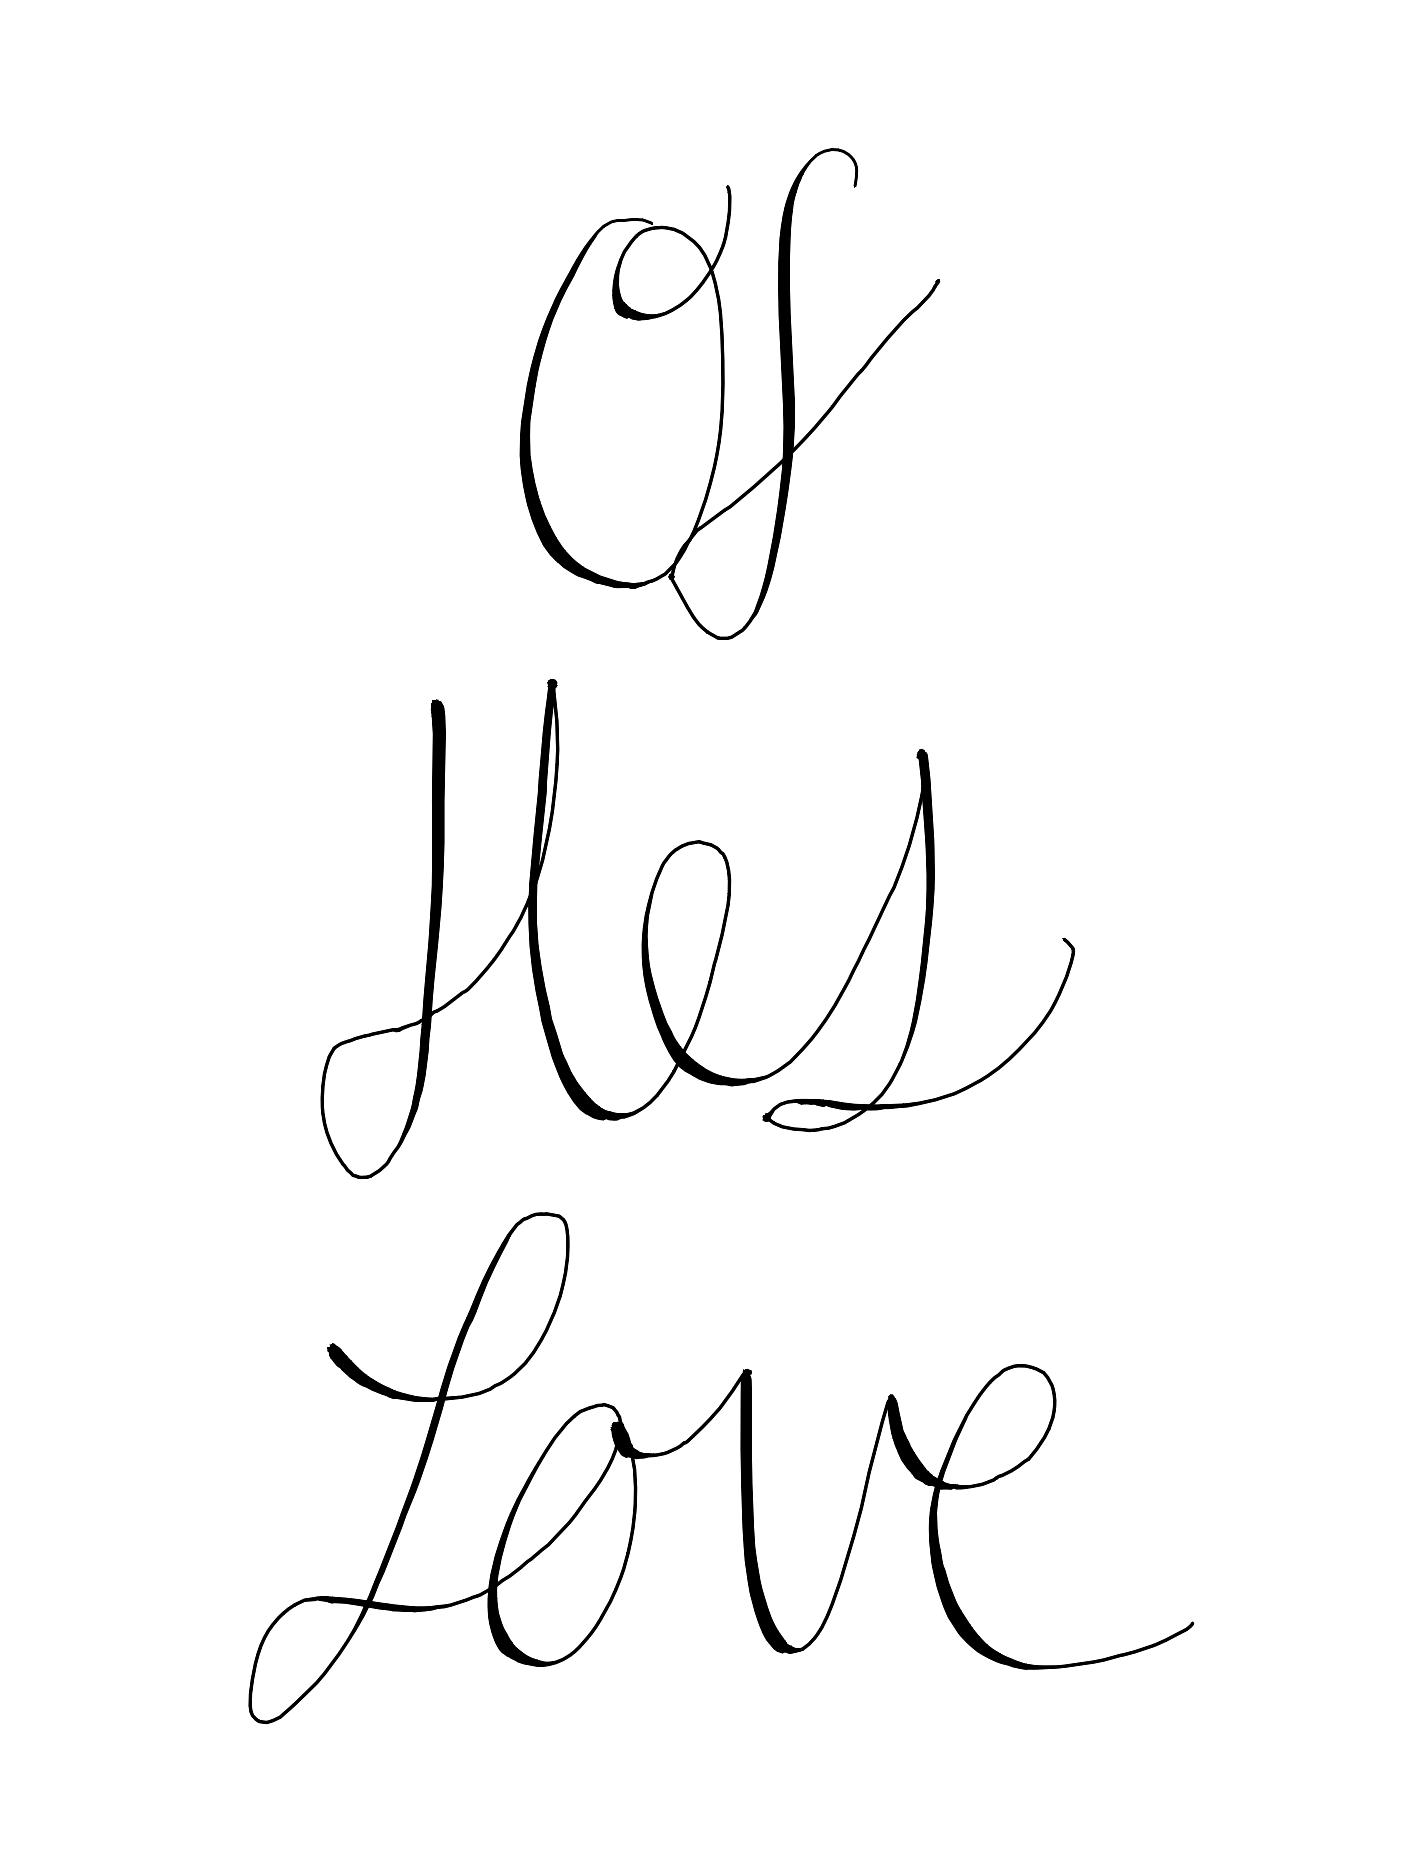 Of
Hes
Love